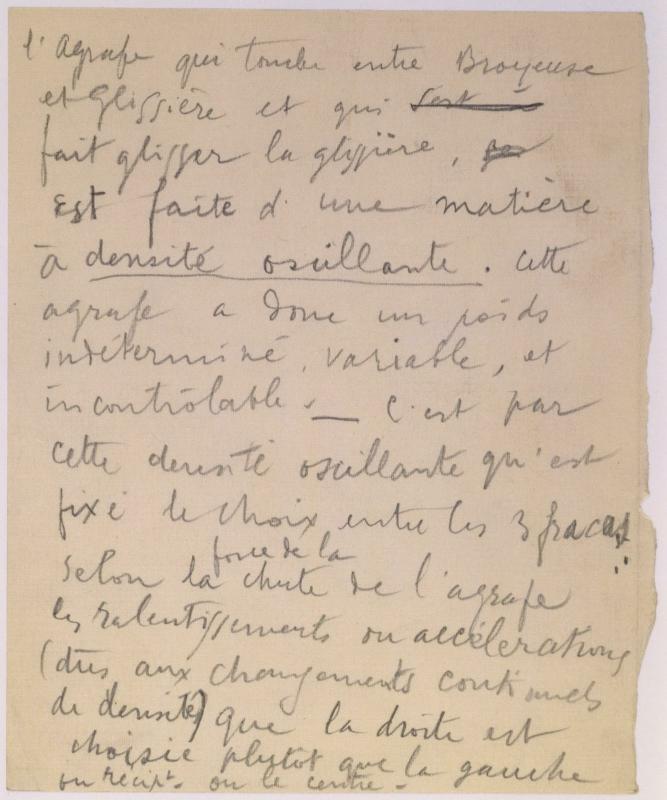 l'agrafe qui tombe entre Broyeuse
et Glissière et qui s'est à
fait glisser la glissière,
est faite d'une matière
à densité oscillante. Cette
agrafe a donc un poids
indéterminé, variable, et
incontrôlable. — C'est par
cette densité oscillante qu'est
fixé le choix entre les 3 fracas:
force de la
selon la chute de l'agrafe
les ralentissements ou accélérations
(dus aux changements continuels
de densité) que la droite est
choisie plutôt que la gauche
ou récipt. ou le centre.